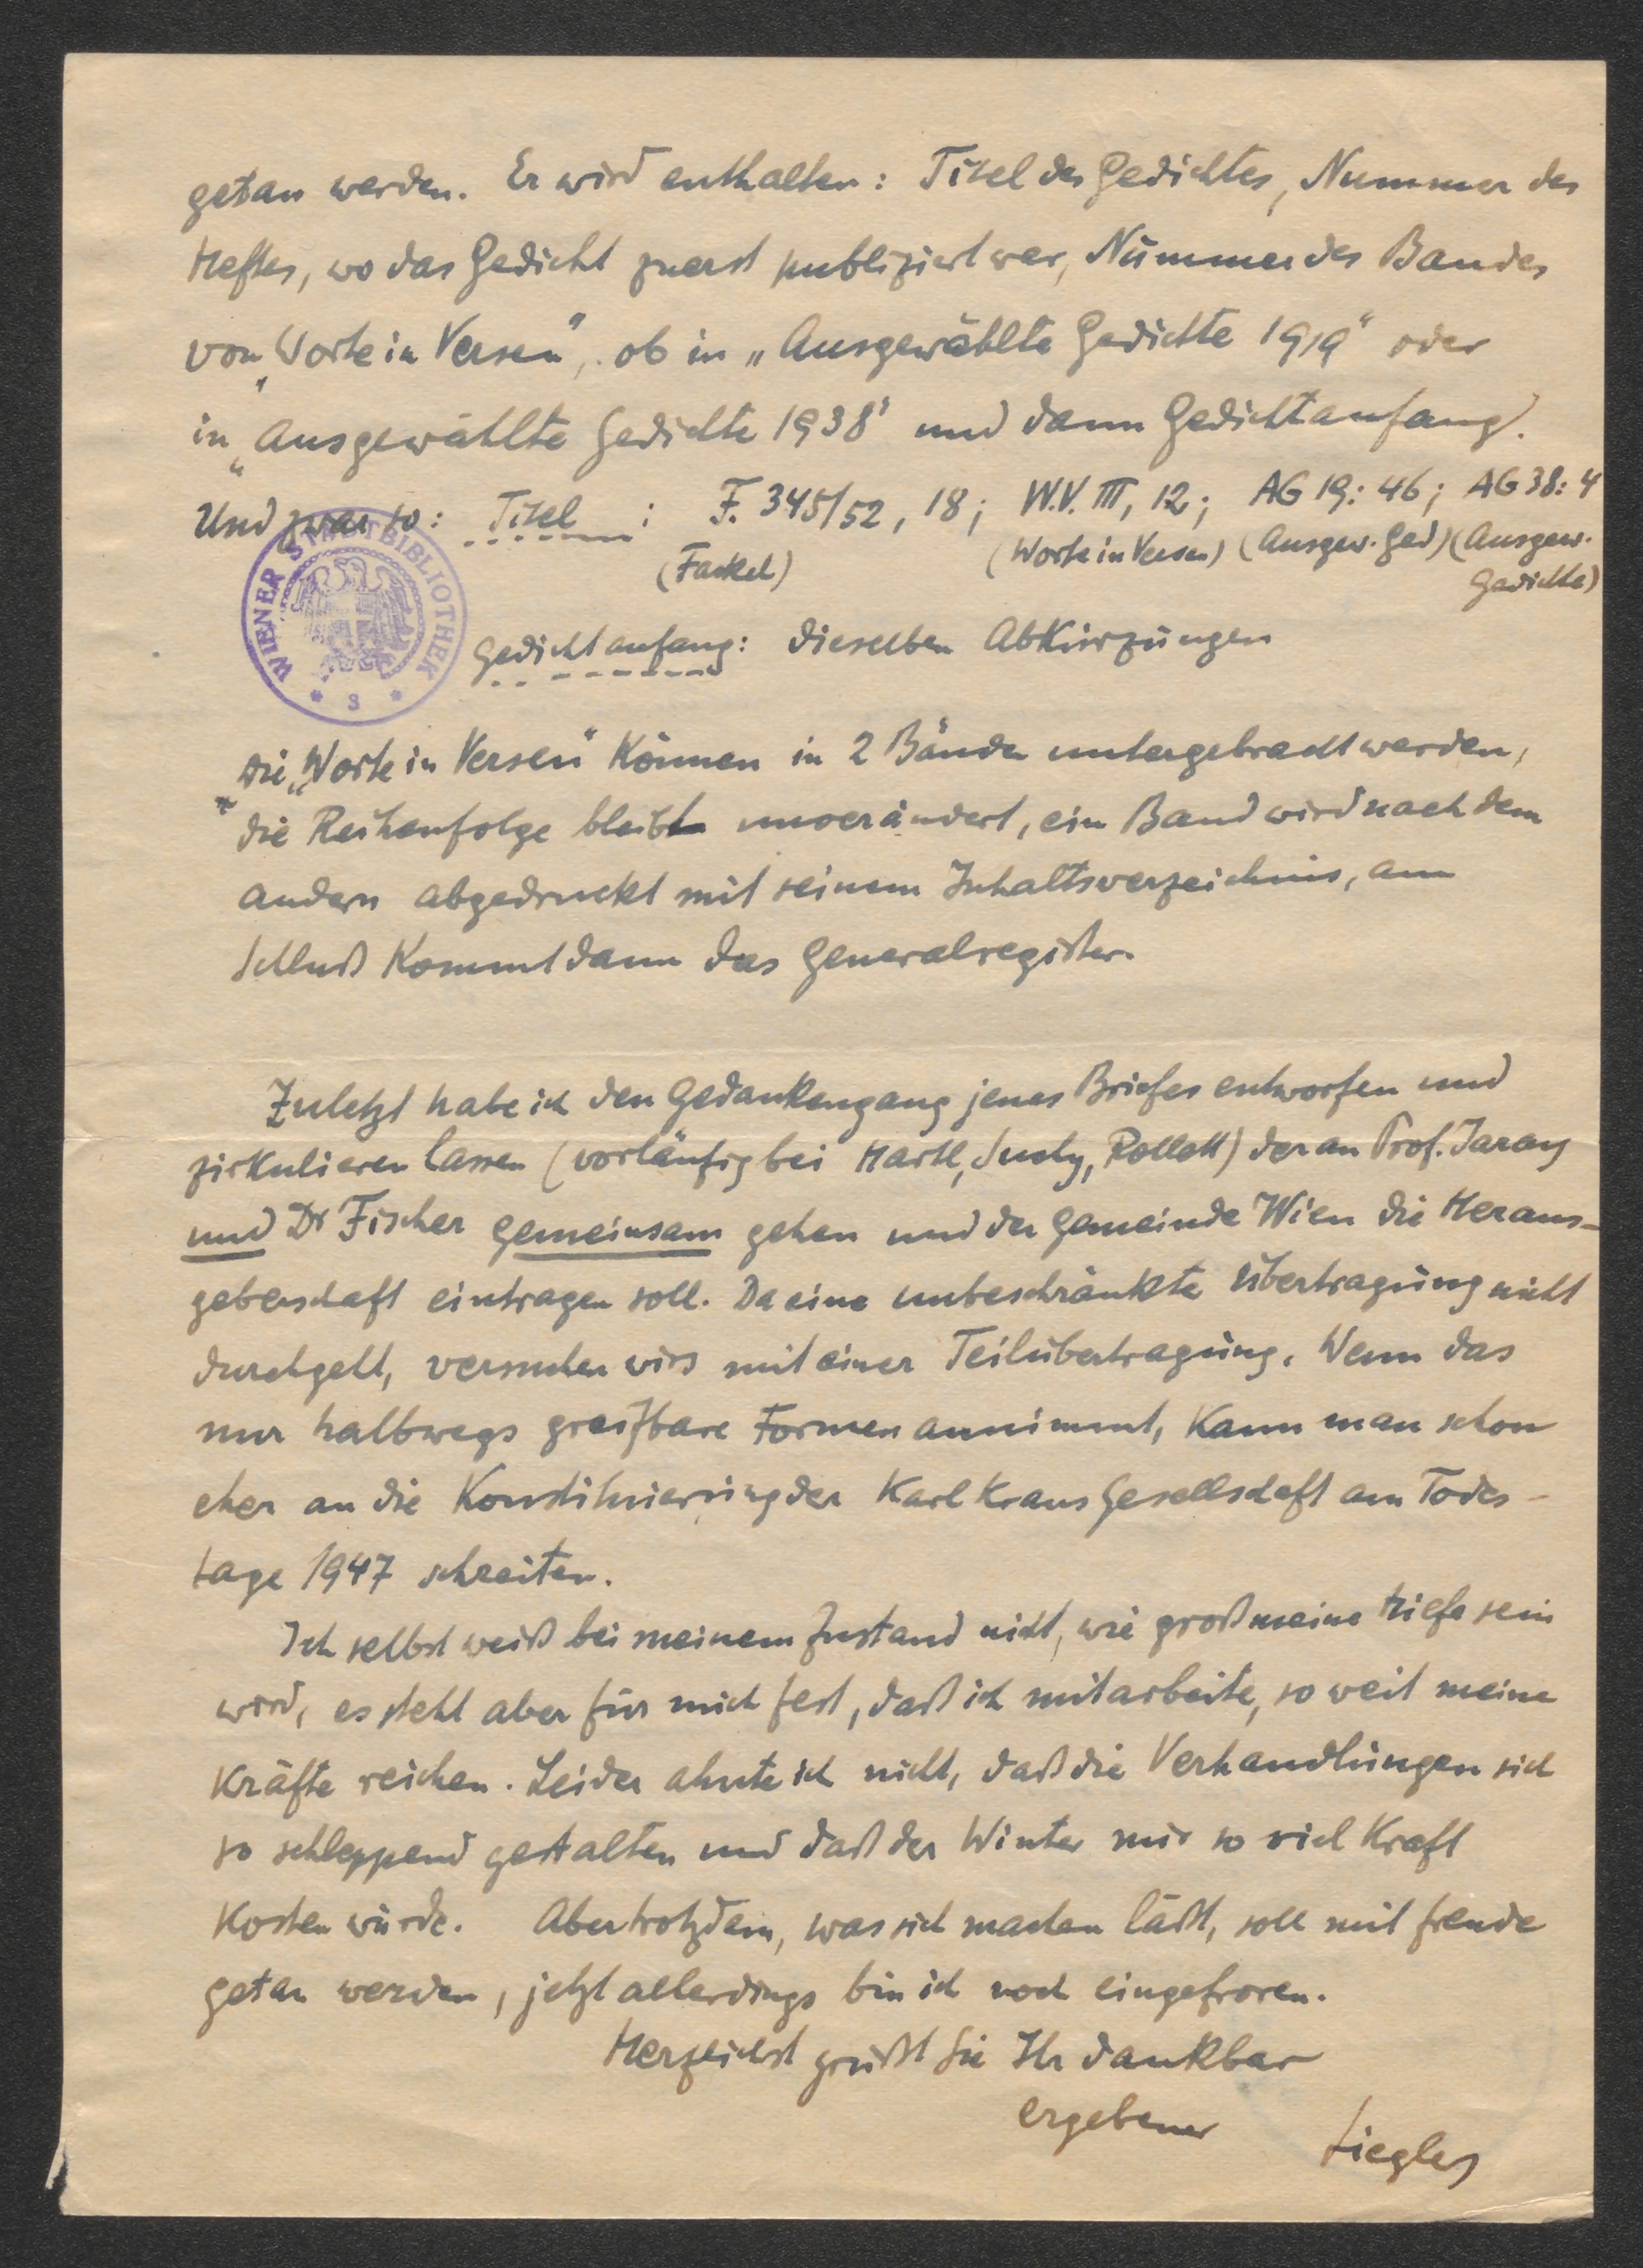 getan werden. Er wird enthalten: Titel des Gedichtes, Nummer des
Heftes, wo das Gedicht zuerst publiziert war, Nummer des Bandes
von „Worte in Versen", ob in „Ausgewählte Gedichte 1919" oder
in „Ausgewählte Gedichte 1938" und dann Gedichtanfang.
Und zwar so: Titel : F. 345/52, 18; W.V. III, 12; AG 19: 46; AG 38: 4
(Fackel) (Worte in Versen) (Ausgew. Ged) (Ausgew.
Gedichte)
WIENER STADTBIBLIOTHEK
* 3 *
Gedichtanfang: dieselben Abkürzungen
Die „Worte in Versen" können in 2 Bänden untergebracht werden,
die Reihenfolge bleibt unverändert, ein Band wird nach dem
andern abgedruckt mit seinem Inhaltsverzeichnis, am
Schluß kommt dann das Generalregister.
Zuletzt habe ich den Gedankengang jenes Briefes entworfen und
zirkulieren lassen (vorläufig bei Hartl, Rollett) der an Prof. Jaray
und Dr Fischer gemeinsam gehen und der Gemeinde Wien die Heraus-
geberschaft eintragen soll. Da eine unbeschränkte Übertragung nicht
durchgeht, versuchen wirs mit einer Teilübertragung. Wenn das
nur halbwegs greifbare Formen annimmt, kann man schon
eher an die Konstituierung der Karl Kraus Gesellschaft am Todes-
tage 1947 schreiten.
Ich selbst weiß bei meinem Zustand nicht, wie groß meine Hilfe sein
wird, es steht aber für mich fest, daß ich mitarbeite, so weit meine
Kräfte reichen. Leider ahnte ich nicht, daß die Verhandlungen sich
so schleppend gestalten und daß der Winter mir so viel Kraft
kosten würde. Aber trotzdem, was sich machen läßt, soll mit Freude
getan werden, jetzt allerdings bin ich noch eingefroren.
Herzlichst grüßt Sie Ihr dankbar
ergebener
Liegler